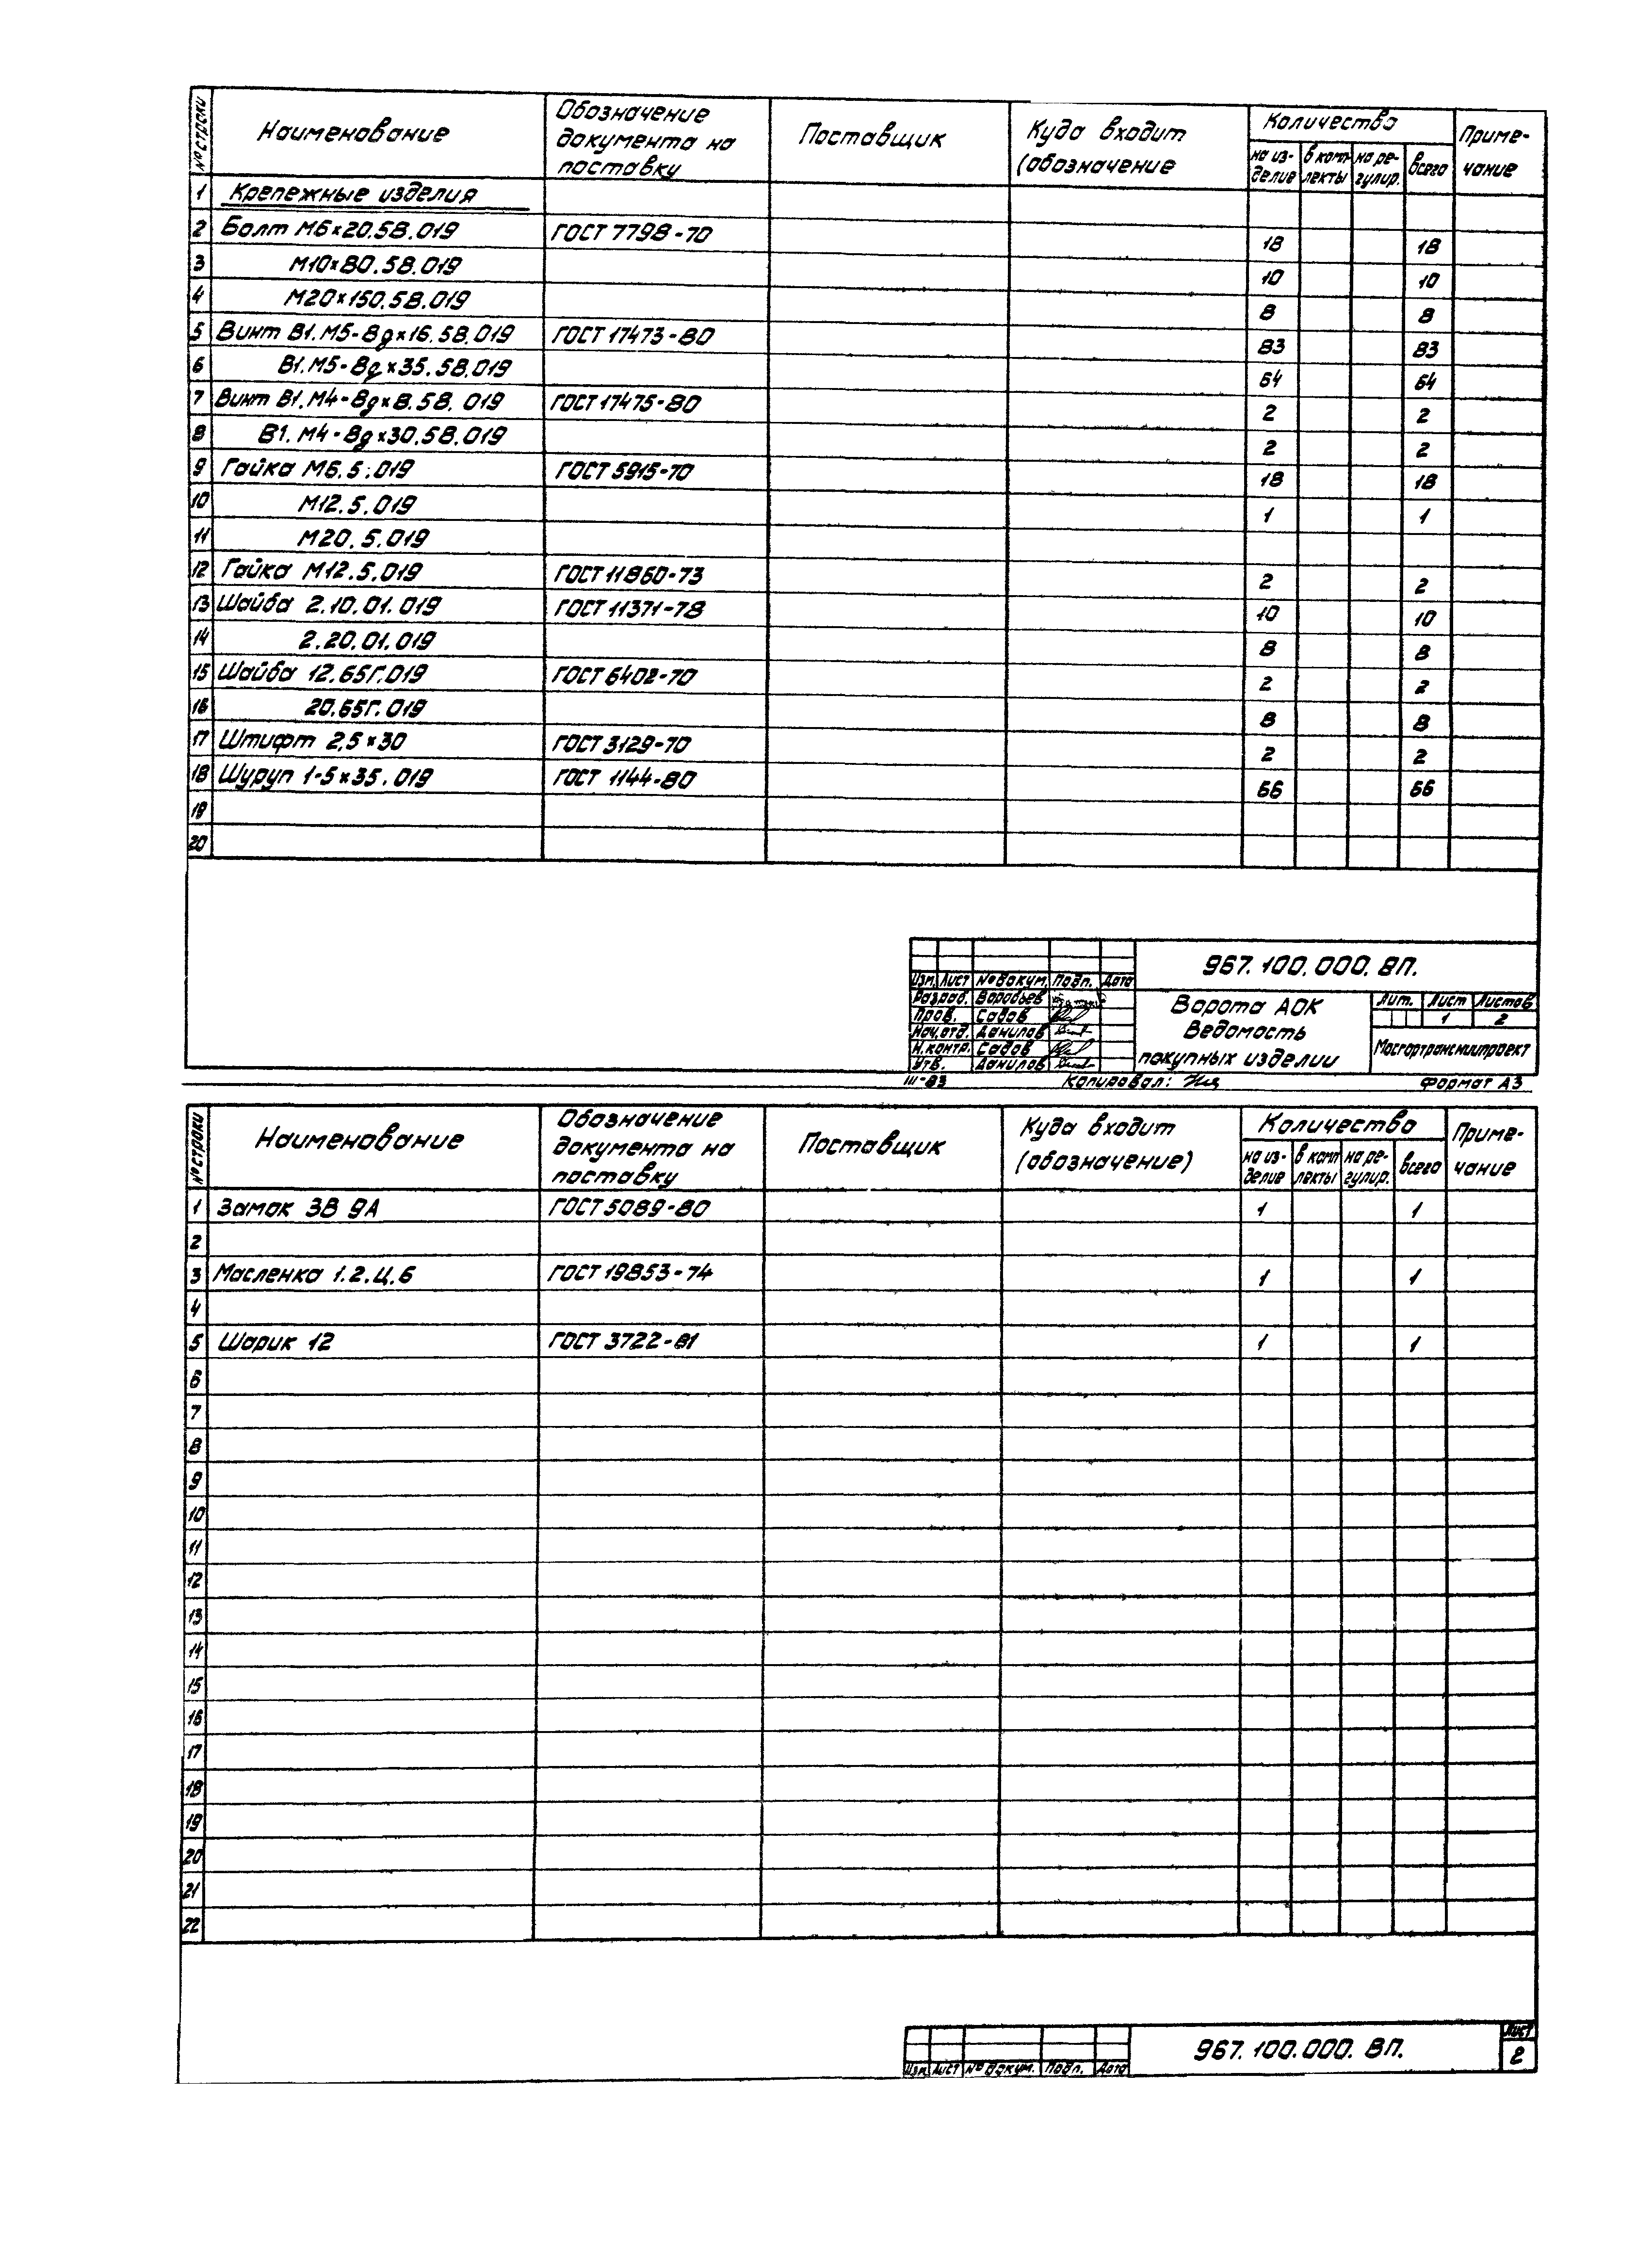 № строки Наименование Обозначение документа на поставку Поставщик Куда входит (обозначение Количество Приме-чание
на из-делие в комп лекты на ре-гулир. всего
1 Крепежные изделия
2 Болт М6×20.58.019 ГОСТ 7798-70 18 18
3 М10×80.58.019 10 10
4 М20×150.58.019 8 8
5 Винт В1.М5-8g×16.58.019 ГОСТ 17473-80 83 83
6 В1.М5-8g×35.58.019 64 64
7 Винт В1.М4-8g×8.58.019 ГОСТ 17475-80 2 2
8 В1.М4-8g×30.58.019 2 2
9 Гайка М6.5.019 ГОСТ 5915-70 18 18
10 М12.5.019 1 1
11 М20.5.019
12 Гайка М12.5.019 ГОСТ 11860-73 2 2
13 Шайба 2.10.01.019 ГОСТ 11371-78 10 10
14 2.20.01.019 8 8
15 Шайба 12.65Г.019 ГОСТ 6402-70 2 2
16 20.65Г.019 8 8
17 Штифт 2,5×30 ГОСТ 3129-70 2 2
18 Шуруп 1-5×35.019 ГОСТ 1144-80 66 66
19
20
967.100.000.ВП.
Изм. Лист № докум. Подп. Дата
Разраб. Воробьев
Пров. Садов
Нач.отд. Данилов
Н.контр. Садов
Утв. Данилов
Ворота АОК
Ведомость
покупных изделии
Лит. Лист Листов
1 2
Мосгортрансниипроект
III-83 Копировал: Формат А3
№ строки Наименование Обозначение документа на поставку Поставщик Куда входит (обозначение) Количество Приме-чание
на из-делие в комп лекты на ре-гулир. всего
1 Замок ЗВ 9А ГОСТ 5089-80 1 1
2
3 Масленка 1.2.Ц.6 ГОСТ 19853-74 1 1
4
5 Шарик 12 ГОСТ 3722-81 1 1
6
7
8
9
10
11
12
13
14
15
16
17
18
19
20
21
22
Изм Лист № докум. Подп. Дата
967.100.000.ВП.
Лист
2